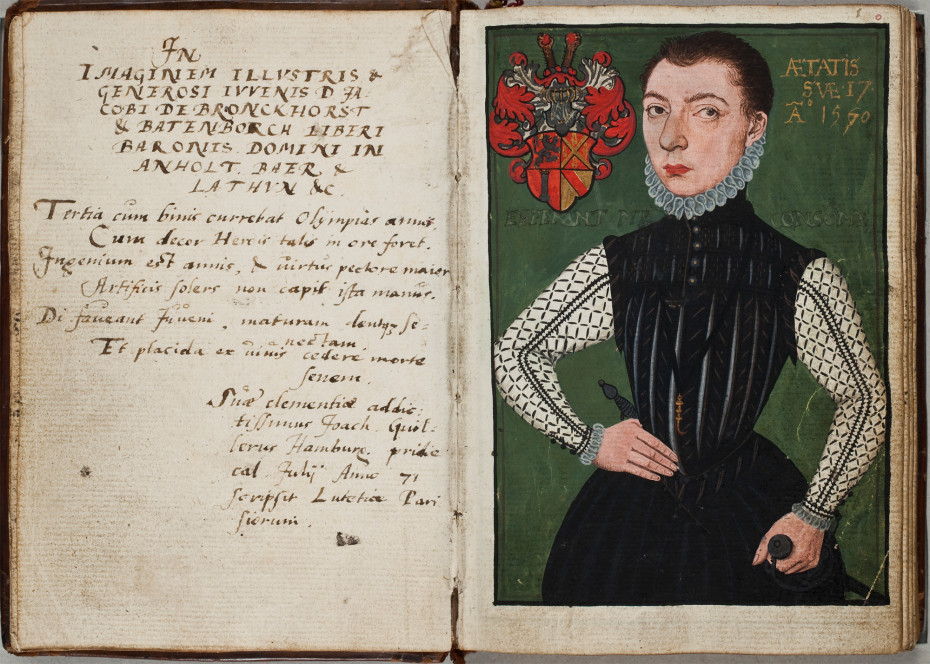 IN
IMAGINEM ILLVSTRIS &
GENEROSI IVVENIS D IA-
COBI DE BRONCKHORST
& BATENBORCH LIBERI
BARONIS. DOMINI IN
ANHOLT. BAER &
LATHVN &C.
Tertia cum binis currebat Olympias annis,
Cum decor Herois talis in ore foret.
Ingenium est annis, & virtus pectore maior
Artificis solers non capit ista manus.
Di faveant Juveni, maturam dentqz se=
nectam
Et placida ex vivis cedere morte
senem.
Suæ clementiæ addic-
tissimus Joach. Guil-
lerus Hamburg. pridie
cal Julij Anno 71
scripsit Lutetiæ Pari
siorum.
ÆTATIS
SVÆ 17
A° 1570